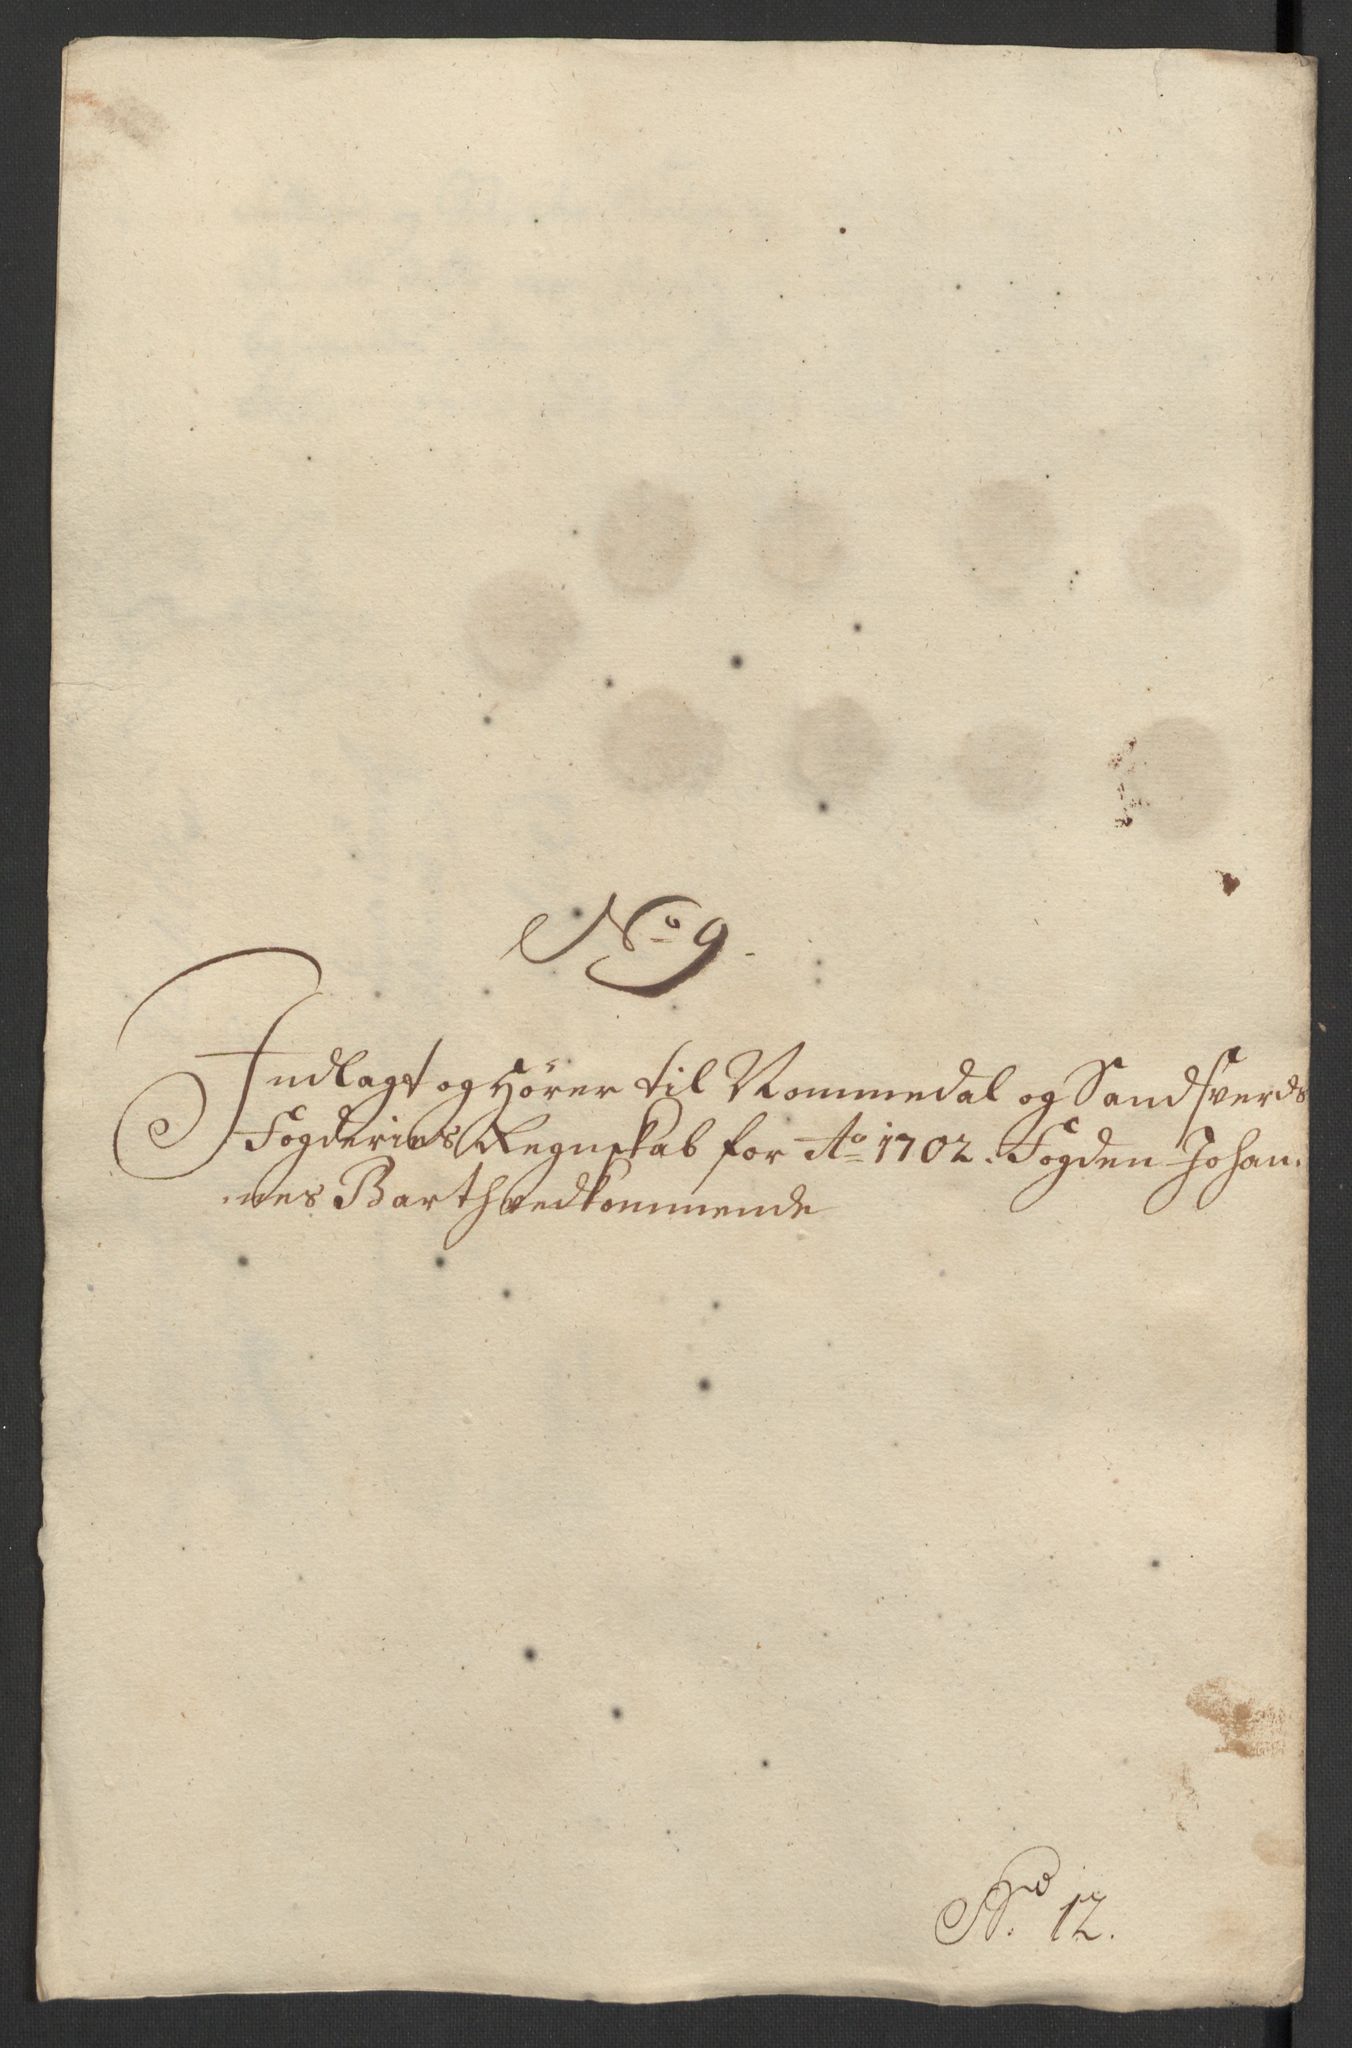 No 9.
Indlagt og Hörer til Nommedal og Sandsverds
Fogderies Regnskab for Ao 1702. Fogden Johan,
nes Barth vedkommende
No 12.